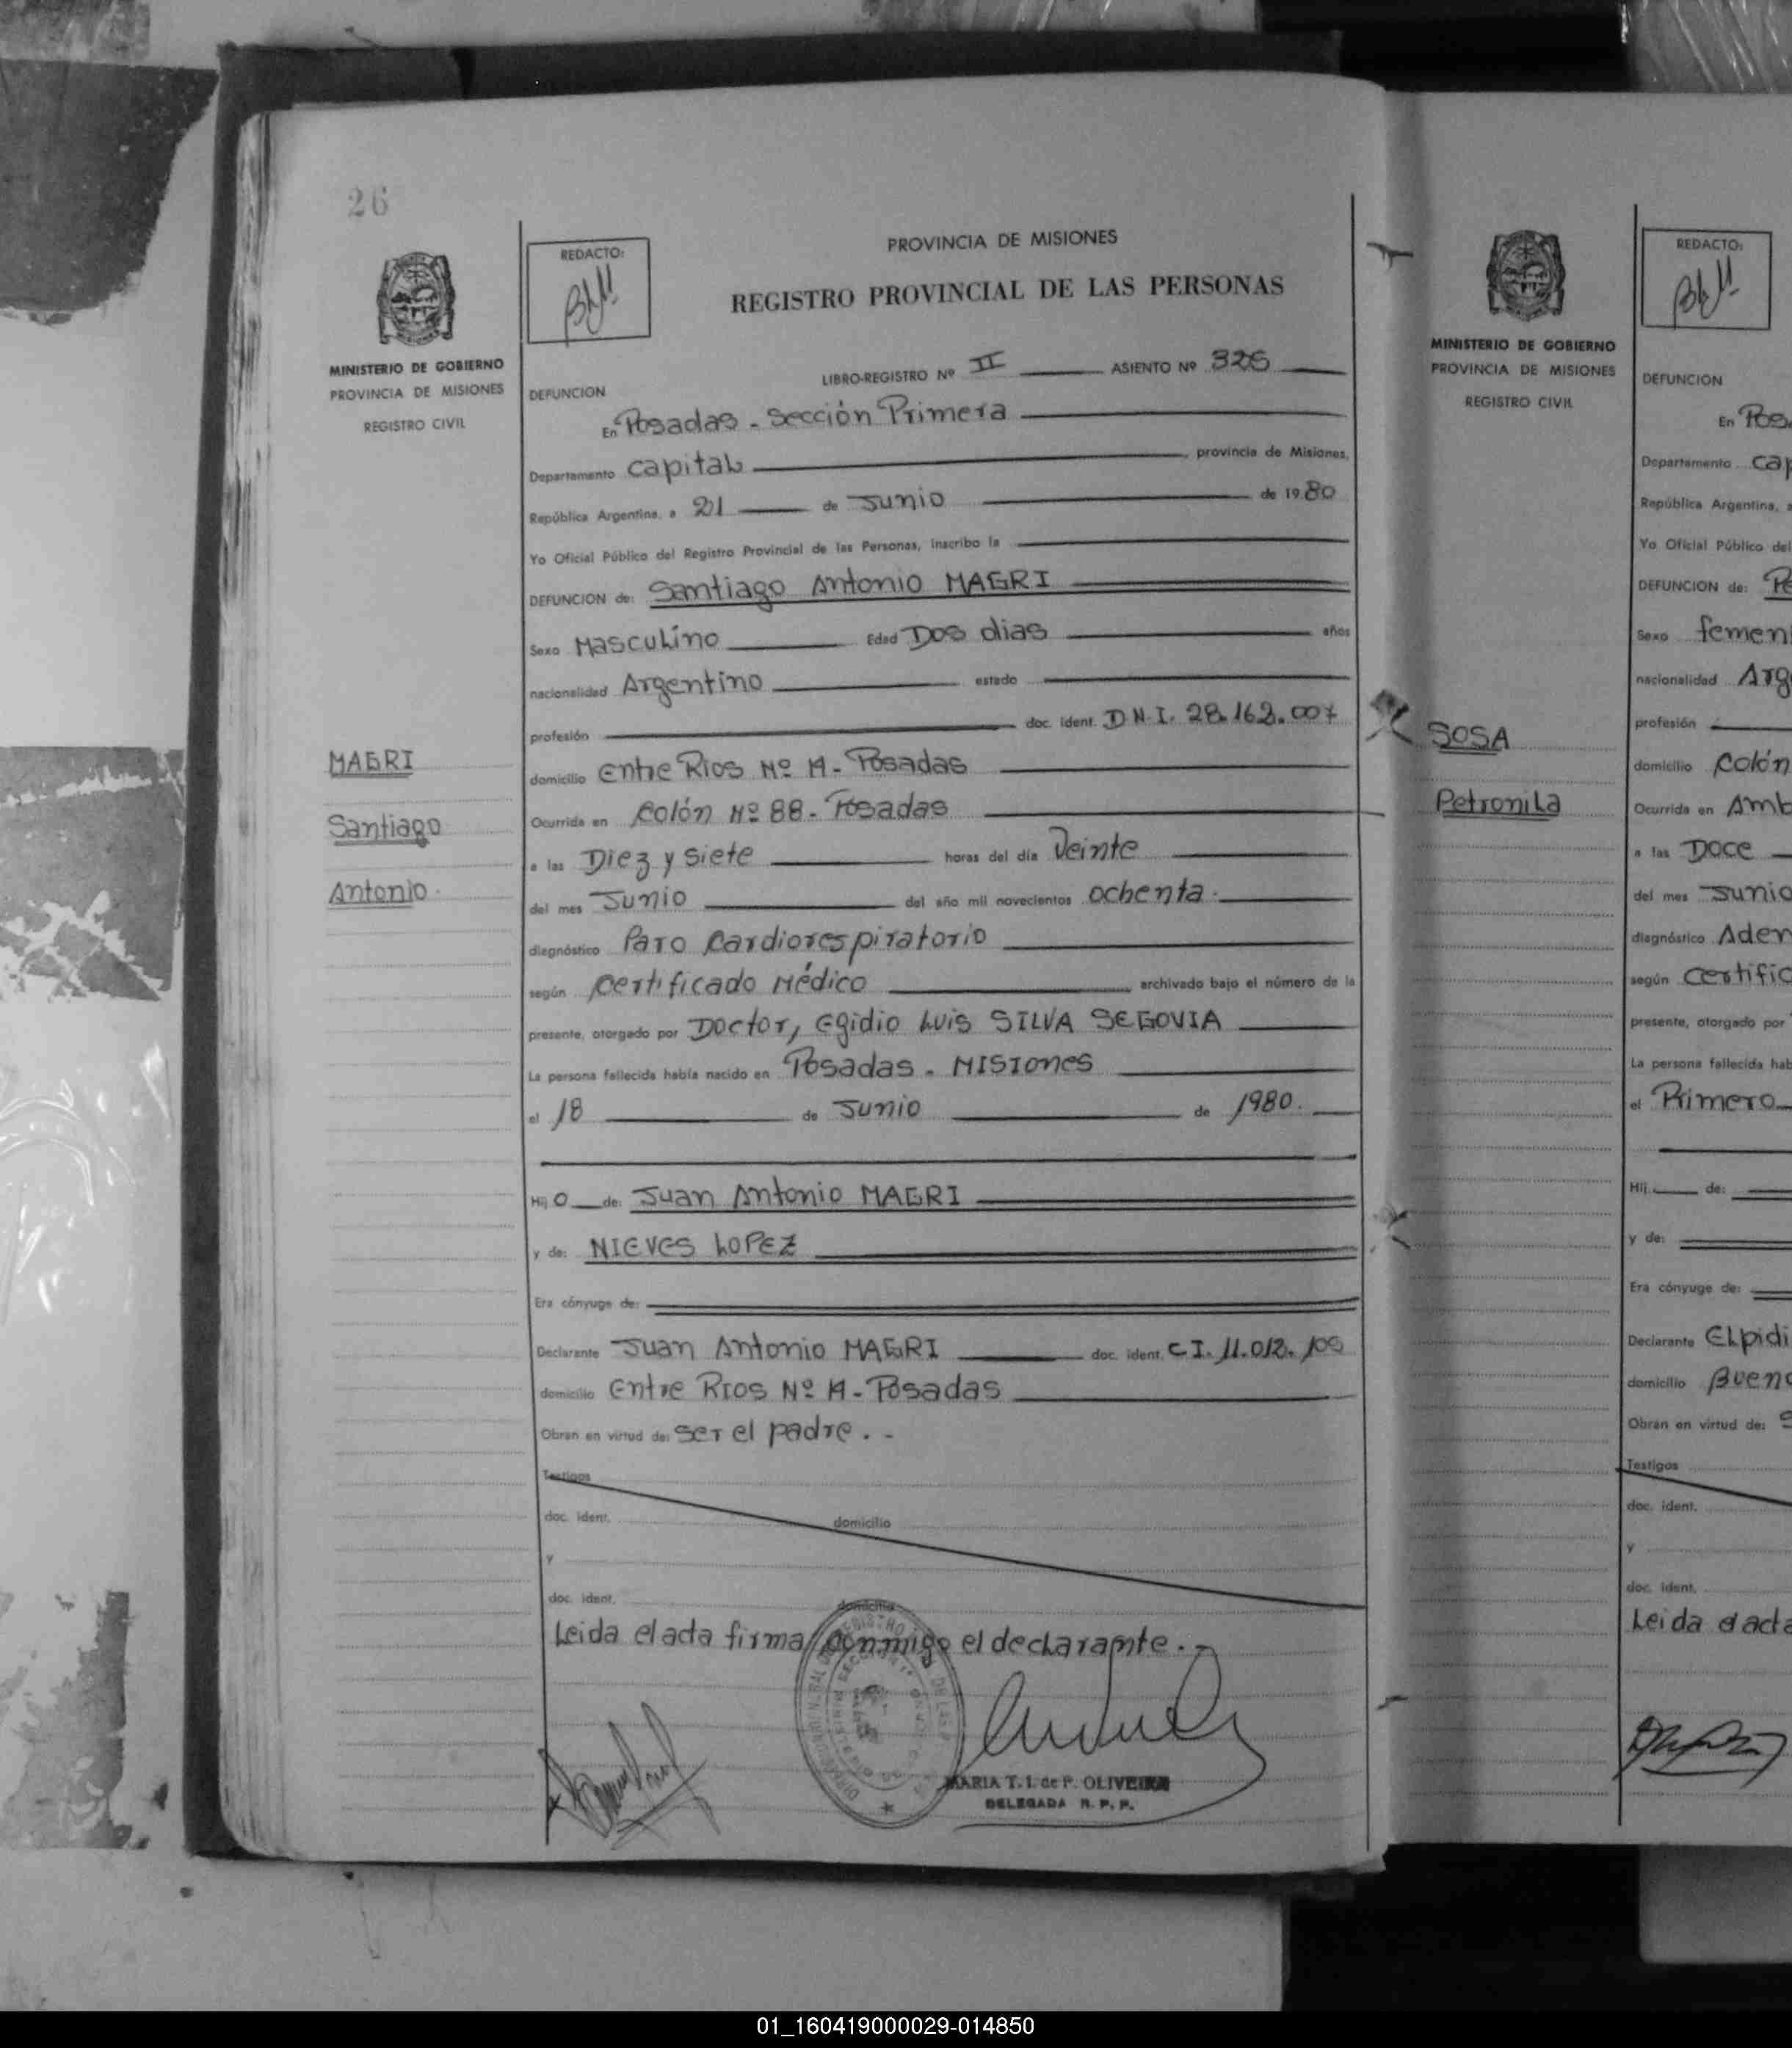 26
MINISTERIO DE GOBIERNO
PROVINCIA DE MISIONES
REGISTRO CIVIL
MAGRI
Santiago
Antonio.
REDACTO:
PROVINCIA DE MISIONES
REGISTRO PROVINCIAL DE LAS PERSONAS
LIBRO-REGISTRO Nº II ASIENTO Nº 326
DEFUNCION
En Posadas - Sección Primera
Departamento Capital, provincia de Misiones,
República Argentina, a 21 de Junio de 1980
Yo Oficial Público del Registro Provincial de las Personas, inscribo la
DEFUNCION de: Santiago Antonio MAGRI
Sexo Masculino Edad Dos dias años
nacionalidad Argentino estado
profesión doc. ident. D.N.I. 28.162.007
domicilio Entre Rios Nº - Posadas
Ocurrida en Colón Nº 88 - Posadas
a las Diez y siete horas del día Veinte
del mes Junio del año mil novecientos ochenta.
diagnóstico Paro Cardiorespiratorio
según Certificado Médico archivado bajo el número de la
presente, otorgado por Doctor, Egidio Luis SILVA SEGOVIA
La persona fallecida había nacido en Posadas - Misiones
el 18 de Junio de 1980.
Hij o de: Juan Antonio MAGRI
y de: NIEVES LOPEZ
Era cónyuge de:
Declarante Juan Antonio MAGRI doc. ident. C.I. 11.012.
domicilio Entre Rios Nº - Posadas
Obran en virtud de: ser el padre. -
Testigos
doc. ident. domicilio
y
doc. ident. domicilio
Leida el acta firma conmigo el declarante. -
MARIA T. I. de P. OLIVEIRA
DELEGADA R. P. P.
MINISTERIO DE GOBIERNO
PROVINCIA DE MISIONES
REGISTRO CIVIL
SOSA
Petronila
REDACTO:
DEFUNCION
En Pos
Departamento Cap
República Argentina, a
Yo Oficial Público del
DEFUNCION de: Pe
Sexo femen
nacionalidad Arg
profesión
domicilio Colón
Ocurrida en Amb
a las Doce
del mes Junio
diagnóstico Aden
según Certific
presente, otorgado por
La persona fallecida hab
el Primero
Hij de:
y de:
Era cónyuge de:
Declarante Elpidi
domicilio Buen
Obran en virtud de: S
Testigos
doc. ident.
y
doc. ident.
Leida el acta
01_160419000029-014850